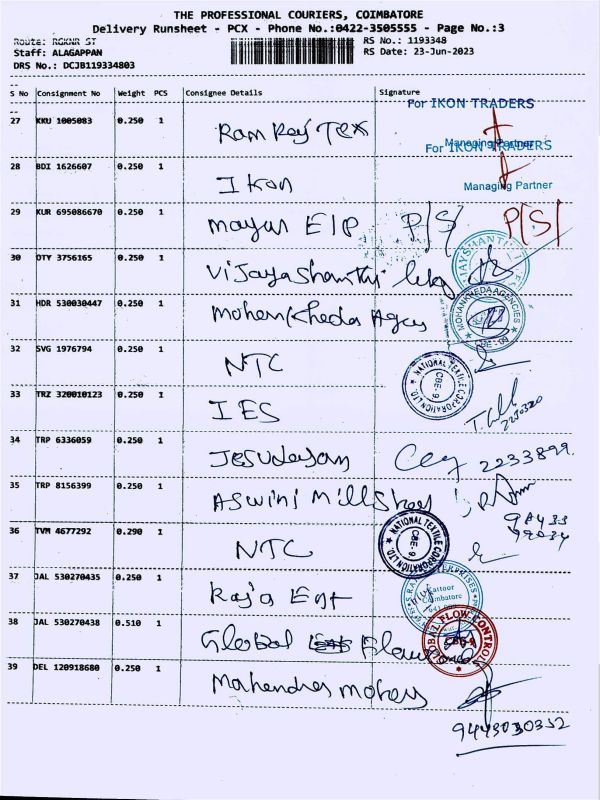 THE PROFESSIONAL COURIERS, COIMBATORE
Delivery Runsheet - PCX - Phone No.:0422-3505555 - Page No.:3
Route: RGKNR ST
RS No.: 1193348
Staff: ALAGAPPAN
RS Date: 23-Jun-2023
DRS No.: DCJB119334803
S No Consignment No Weight PCS Consignee Details Signature
For IKON TRADERS
27 KKU 1005083 0.250 1 Ram Raj Tex
Managing Partner
For IKON TRADERS
28 BDI 1626607 0.250 1 Ikon
Managing Partner
29 KUR 695086670 0.250 1 Mayur EIP P/S/ P/S/
30 OTY 3756165 0.250 1 Vijayashanthi
31 HDR 530030447 0.250 1 Mohan Kheda Agcy
MOHANKHEDA AGENCIES
CBE-09
32 SVG 1976794 0.250 1 NTC
NATIONAL TEXTILE CORPORATION LTD.
CBE-9
33 TRZ 320010123 0.250 1 IES
34 TRP 6336059 0.250 1 Jesudayan 2233899
35 TRP 8156399 0.250 1 Aswini Mills
98433
36 TVM 4677292 0.290 1 NTC
NATIONAL TEXTILE CORPORATION LTD.
CBE-9
37 JAL 530270435 0.250 1 Raja Ent
Kattoor
Coimbatore
38 JAL 530270438 0.510 1 Global Flow
GLOBAL FLOW CONTROL
39 DEL 120918680 0.250 1 Mahendra
9443030352